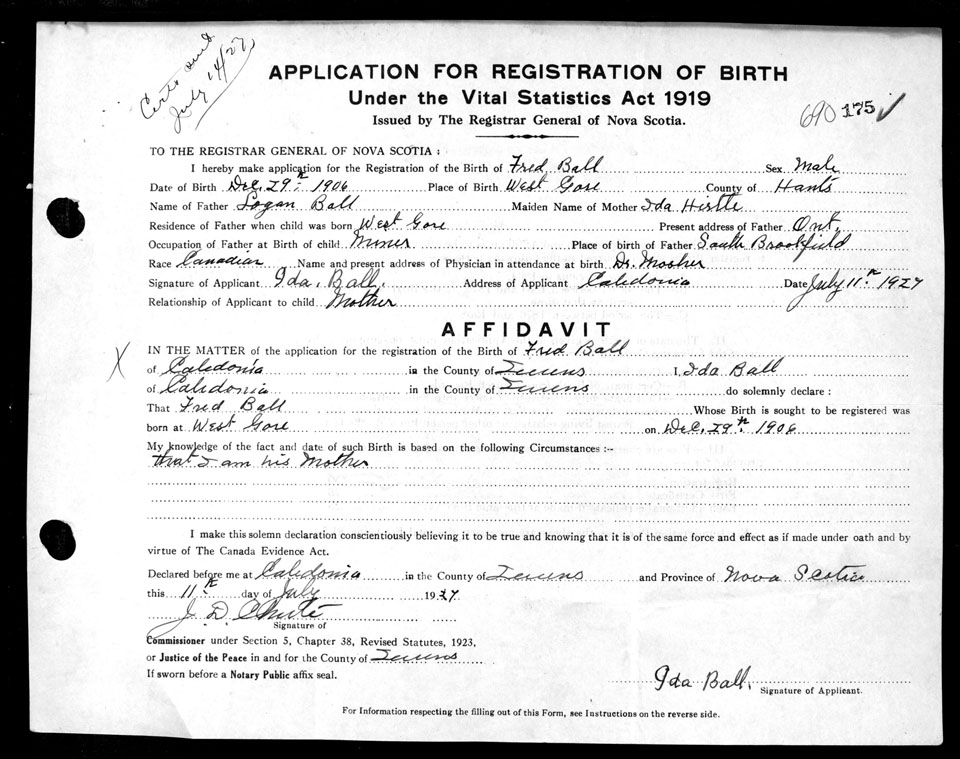 Certs sent
July 14/27
APPLICATION FOR REGISTRATION OF BIRTH
Under the Vital Statistics Act 1919
Issued by The Registrar General of Nova Scotia.
690 175 ✓
TO THE REGISTRAR GENERAL OF NOVA SCOTIA :
I hereby make application for the Registration of the Birth of Fred Ball Sex Male
Date of Birth Dec. 29th 1906 Place of Birth West Gore County of Hants
Name of Father Logan Ball Maiden Name of Mother Ida Hirtle
Residence of Father when child was born West Gore Present address of Father Ont.
Occupation of Father at Birth of child Miner Place of birth of Father South Brookfield
Race Canadian Name and present address of Physician in attendance at birth Dr. Mosher
Signature of Applicant Ida. Ball. Address of Applicant Caledonia Date July 11th 1927
Relationship of Applicant to child Mother
AFFIDAVIT
X IN THE MATTER of the application for the registration of the Birth of Fred Ball
of Caledonia in the County of Queens I, Ida Ball
of Caledonia in the County of Queens do solemnly declare :
That Fred Ball Whose Birth is sought to be registered was
born at West Gore on Dec. 29th 1906
My knowledge of the fact and date of such Birth is based on the following Circumstances :-
that I am his Mother
I make this solemn declaration conscientiously believing it to be true and knowing that it is of the same force and effect as if made under oath and by
virtue of The Canada Evidence Act.
Declared before me at Caledonia in the County of Queens and Province of Nova Scotia
this 11th day of July 1927
J. D. Chute
Signature of
Commissioner under Section 5, Chapter 38, Revised Statutes, 1923,
or Justice of the Peace in and for the County of Queens
If sworn before a Notary Public affix seal.
Ida Ball.
Signature of Applicant.
For Information respecting the filling out of this Form, see Instructions on the reverse side.